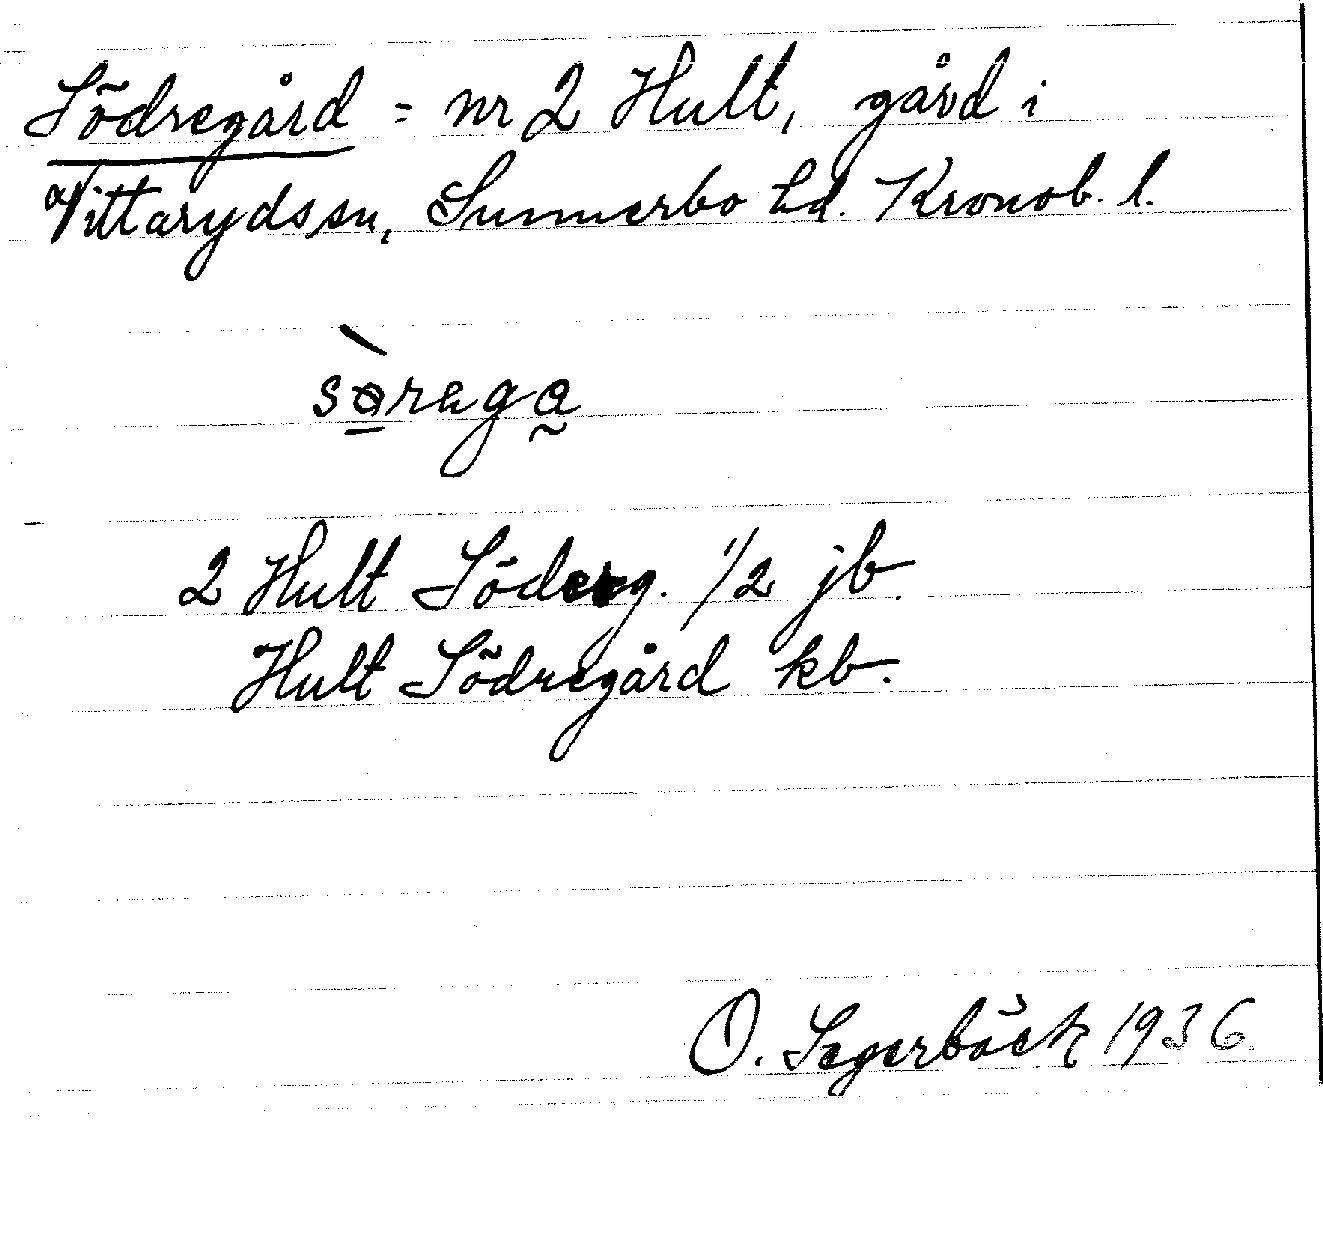 Södregård = nr 2 Hult, gård i
Vittarydssn, Sunnerbo hd. Kronob. l.
2 Hult Söderg. 1/2 jb.
Hult Södregård kb.
O. Segerbäck 1936